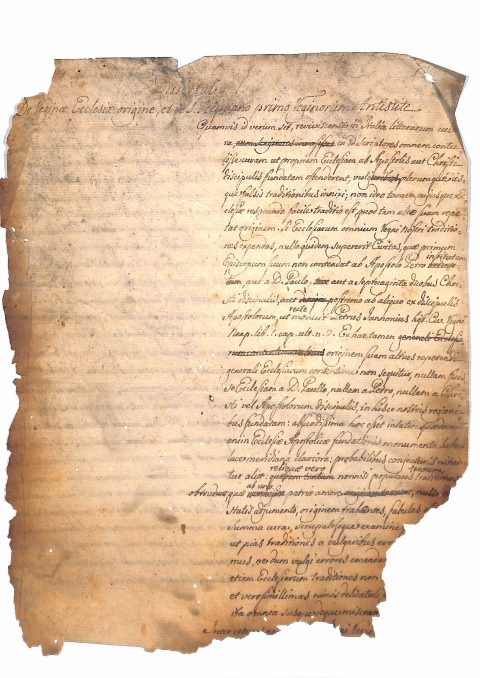 De Reginæ Ecclesiæ origine, et de S. Stephano primo Reginorum Antistite
Quamvis id verum sit, reviviscente in Italia litterarum cul
ra, in id Scriptores omnem contu
lisse curam ut propriam Ecclesiam ab Apostolis aut Christi
discipulis fundatam ostenderent, plerumque
que falsis traditionibus innixi; non ideo tamen cujusque Ec
clesiæ respuenda facile traditio est, quod tam alte suam repe
tat originem. Si Ecclesiarum omnium Regni nostri traditio
nes expendas, nulla quidem supererit Civitas, quæ primum
institutum
Episcopum suum non contendat ab Apostolo Petro
aut a D. Paulo, aut a Septuaginta duobus Chri
sti discipulis, aut postremo ab aliquo ex discipulis
recte
Apostolorum, ut monuit Petrus Jannonius hist. Civ. Regni
Neap. lib. 1. cap. ult. n. 7. Ex hac tamen generali Ecclesia
rum originem suam altius repetendi
generali Ecclesiarum contentione non sequitur, nullam fuis
se Ecclesiam a D. Paullo, nullam a Petro, nullam a Chri
sti vel Apostolorum discipulis, in hisce nostris regioni
bus fundatam: absurdissima hæc esset illatio: quædam
enim Ecclesiæ Apostolicæ fundationis monumenta habe
luce meridiana clariora: probabilibus conjecturis
tur aliæ: reliquæ vero nonnisi populares traditione
ab urbe
obtrudunt, quæ patriæ amore, nullo
stabilis adjumento, originem trahentes, fabulas
Summa cura, scrupuloque examine
ut pias traditiones a vulgaribus erro
mus, ne dum vulgi errores emendam
etiam Ecclesiarum traditiones non
et verosimillimas nimis delicatuli
ita omnia susque deque misceam
Inter